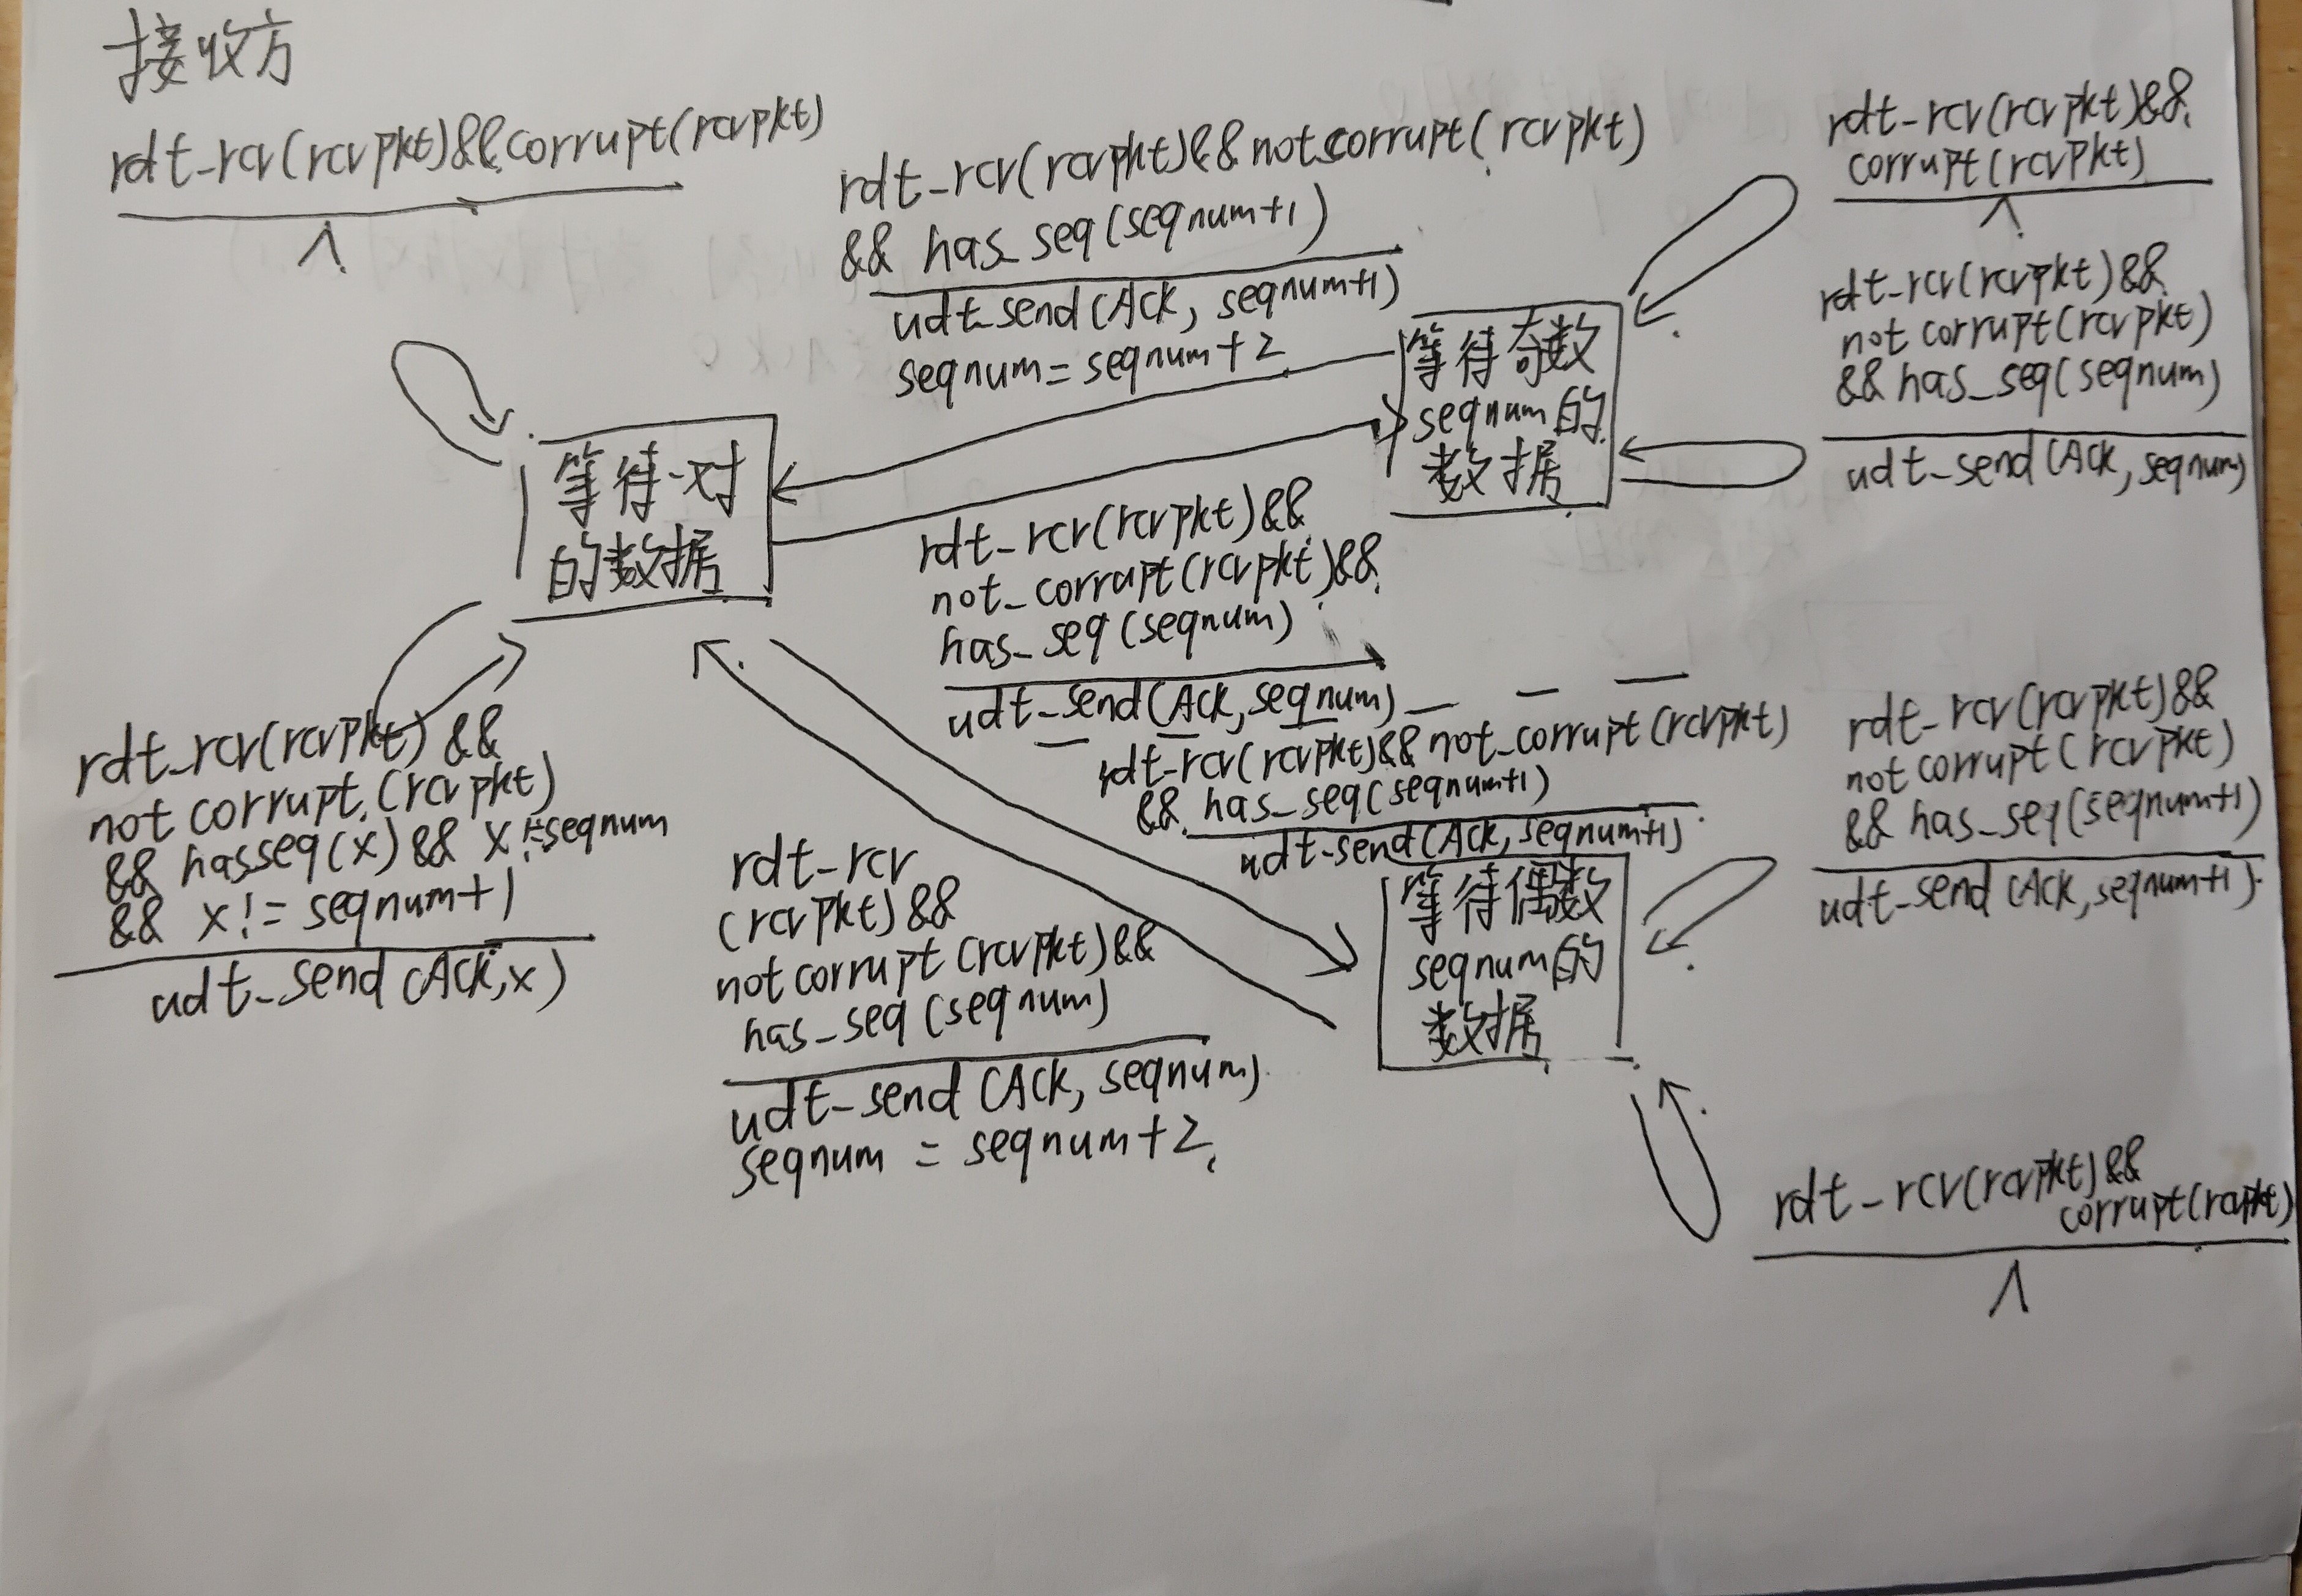 接收方
rdt_rcv(rcvpkt)&&corrupt(rcvpkt)
Λ
rdt_rcv(rcvpkt)&&not_corrupt(rcvpkt)
&& has_seq(seqnum+1)
udt_send(Ack, seqnum+1)
seqnum = seqnum+2
rdt_rcv(rcvpkt)&&
corrupt(rcvpkt)
Λ
rdt_rcv(rcvpkt)&&
not corrupt(rcvpkt)
&& has_seq(seqnum)
udt_send(Ack, seqnum)
等待奇数
seqnum的
数据
等待一对
的数据
rdt_rcv(rcvpkt)&&
not_corrupt(rcvpkt)&&
has_seq(seqnum)
udt_send(Ack, seqnum)
rdt_rcv(rcvpkt) &&
not corrupt (rcvpkt)
&& hasseq(x) && x!=seqnum
&& x!= seqnum+1
udt_send(Ack,x)
rdt_rcv(rcvpkt)&&not_corrupt(rcvpkt)
&& has_seq(seqnum+1)
udt_send(Ack, seqnum+1)
等待偶数
seqnum的
数据
rdt_rcv(rcvpkt)&&
not corrupt(rcvpkt)
&& has_seq(seqnum+1)
udt_send(Ack, seqnum+1)
rdt_rcv
(rcvpkt)&&
not corrupt(rcvpkt)&&
has_seq(seqnum)
udt_send(Ack, seqnum)
seqnum = seqnum+2
rdt_rcv(rcvpkt)&&
corrupt(rcvpkt)
Λ